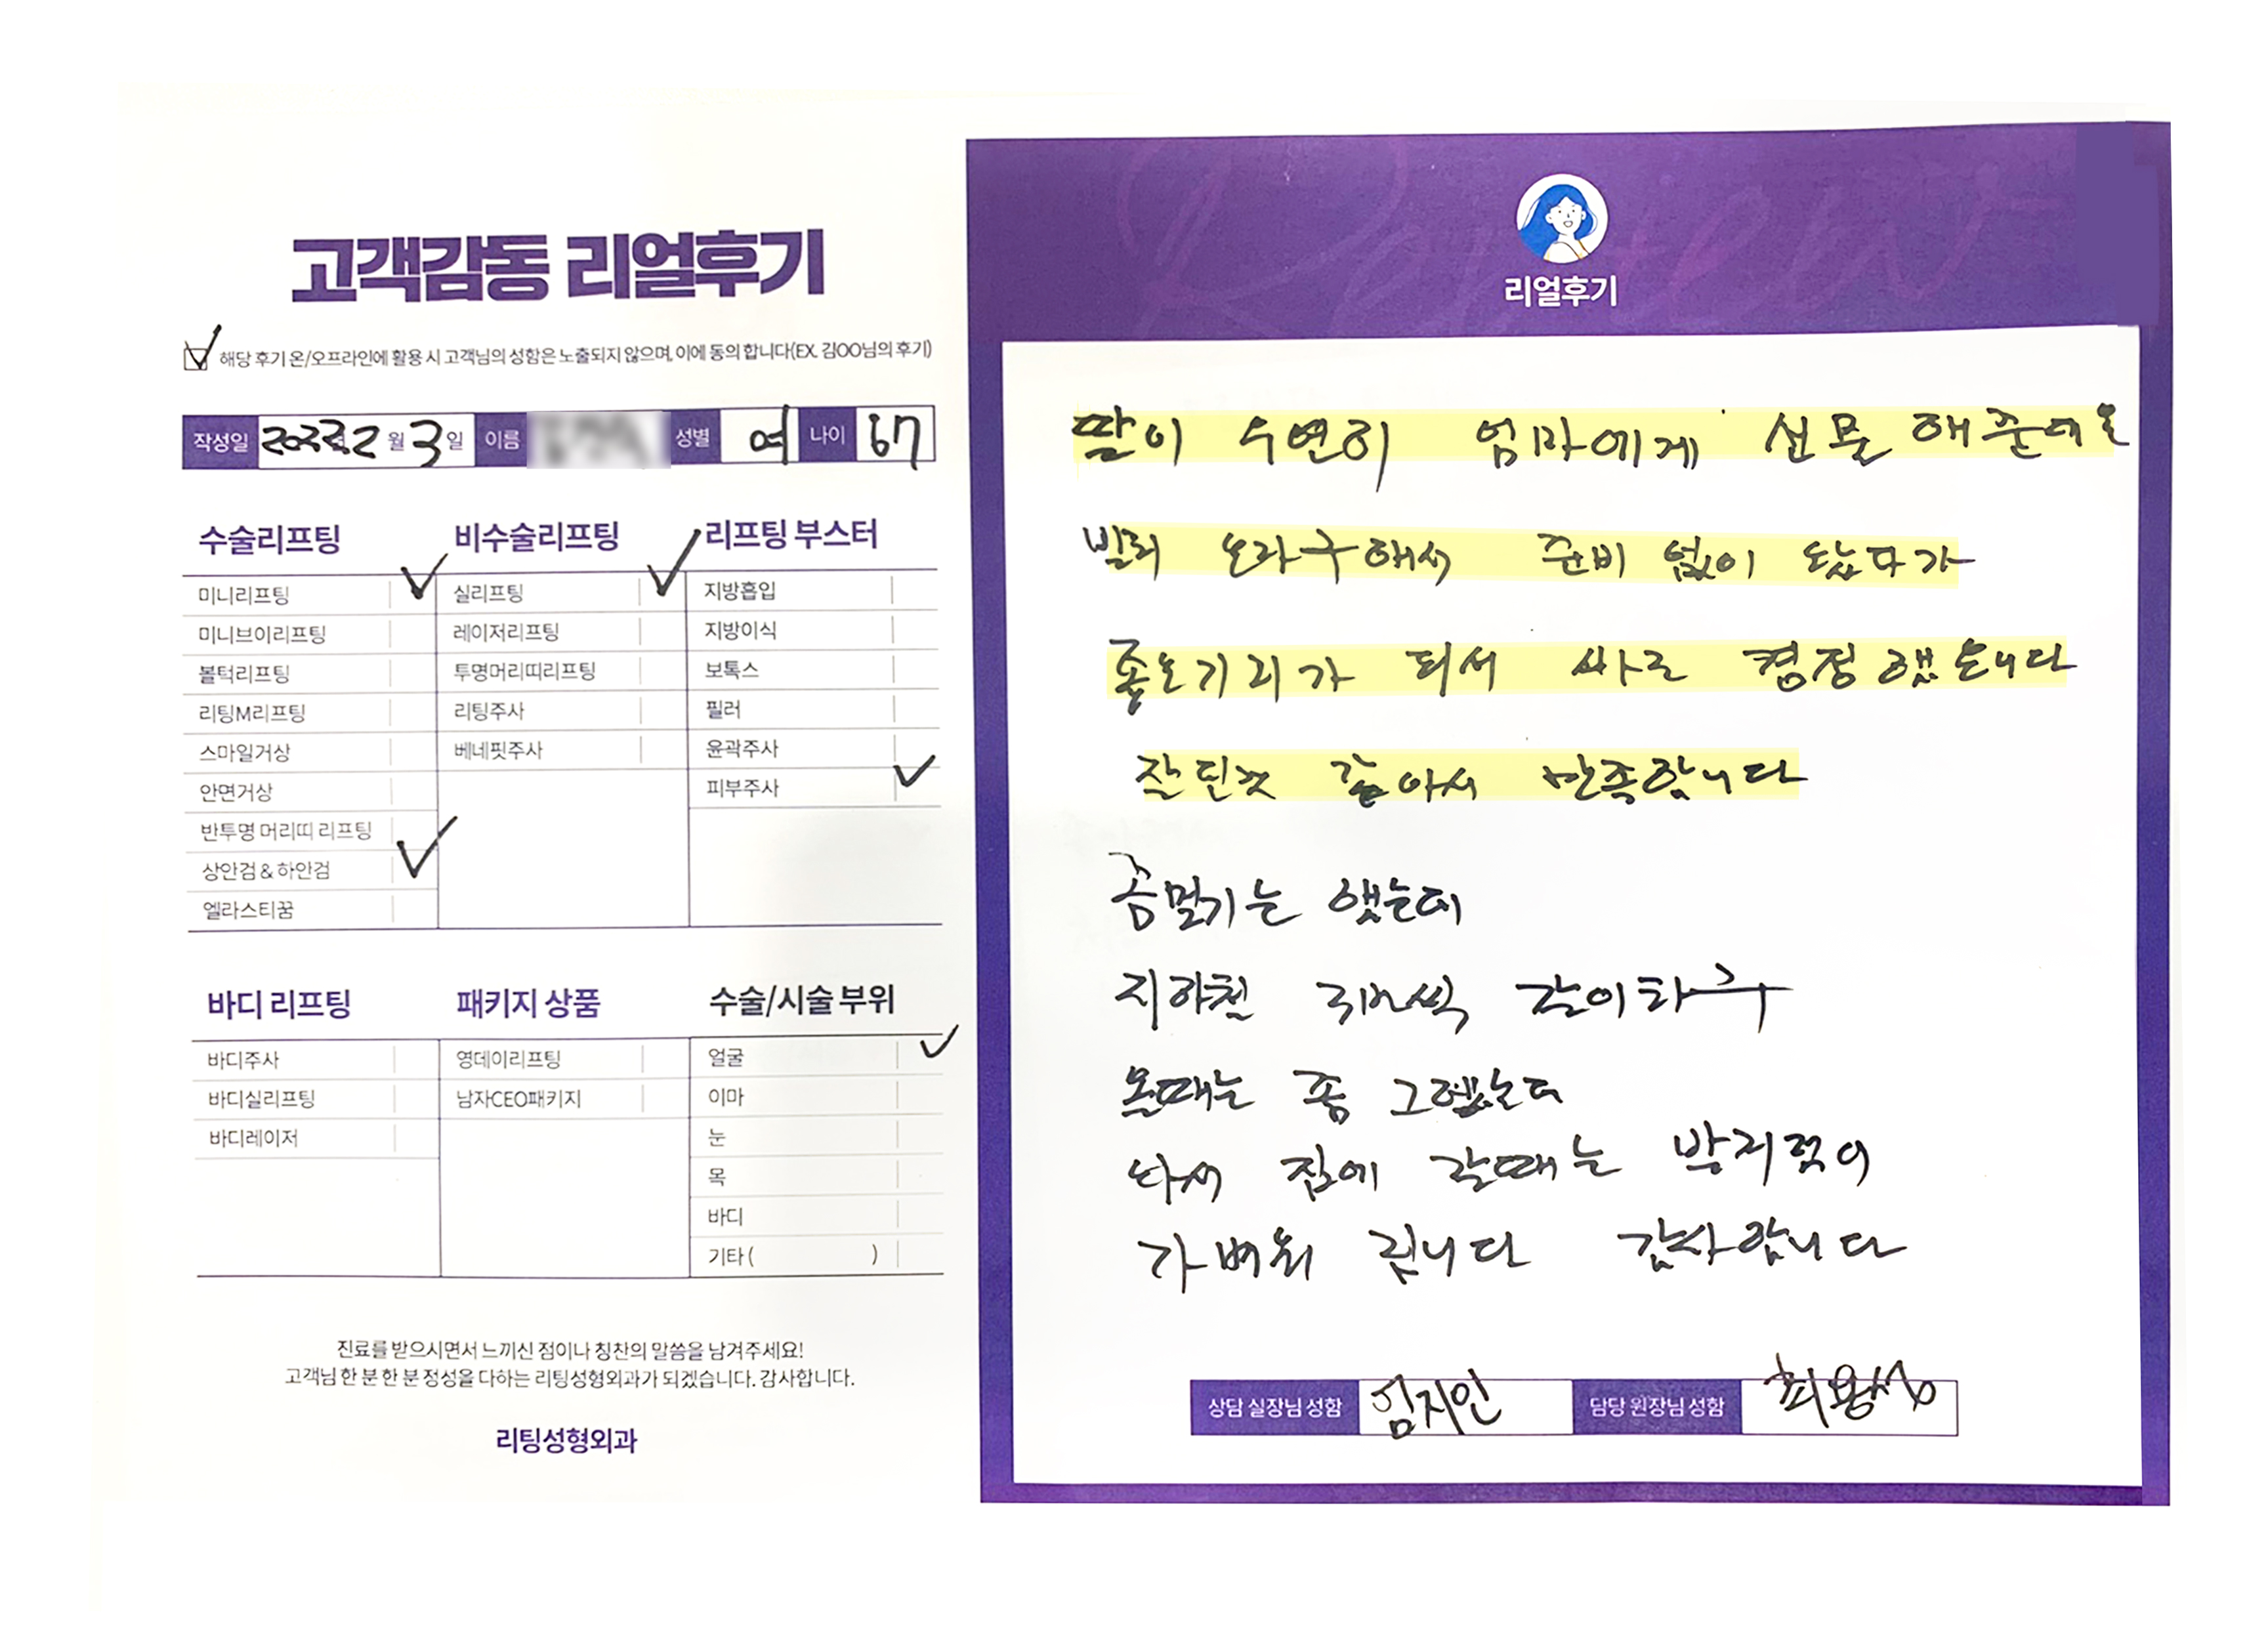 고객감동 리얼후기
해당 후기 온/오프라인에 활용 시 고객님의 성함은 노출되지 않으며, 이에 동의 합니다(EX. 김OO님의 후기)
작성일 2022년 2 월 3 일 이름 성별 여 나이 67
수술리프팅 비수술리프팅 리프팅 부스터
미니리프팅 실리프팅 지방흡입
미니브이리프팅 레이저리프팅 지방이식
볼턱리프팅 투명머리띠리프팅 보톡스
리팅M리프팅 리팅주사 필러
스마일거상 베네핏주사 윤곽주사
안면거상 피부주사
반투명 머리띠 리프팅
상안검 & 하안검
엘라스티꿈
바디 리프팅 패키지 상품 수술/시술 부위
바디주사 영데이리프팅 얼굴
바디실리프팅 남자CEO패키지 이마
바디레이저 눈
목
바디
기타 ( )
진료를 받으시면서 느끼신 점이나 칭찬의 말씀을 남겨주세요!
고객님 한 분 한 분 정성을 다하는 리팅성형외과가 되겠습니다. 감사합니다.
리팅성형외과
Review
리얼후기
딸이 우연히 엄마에게 선물 해준데요
빨리 오라구해서 준비 없이 왔다가
좋은기회가 되서 바로 결정했습니다
잘된것 같아서 만족합니다
좀멀기는 했는데
지하철 갈아타구
올때는 좀 그랬는데
나서 집에 갈때는 발걸음이
가벼워 집니다 감사합니다
상담 실장님 성함 임지인 담당 원장님 성함